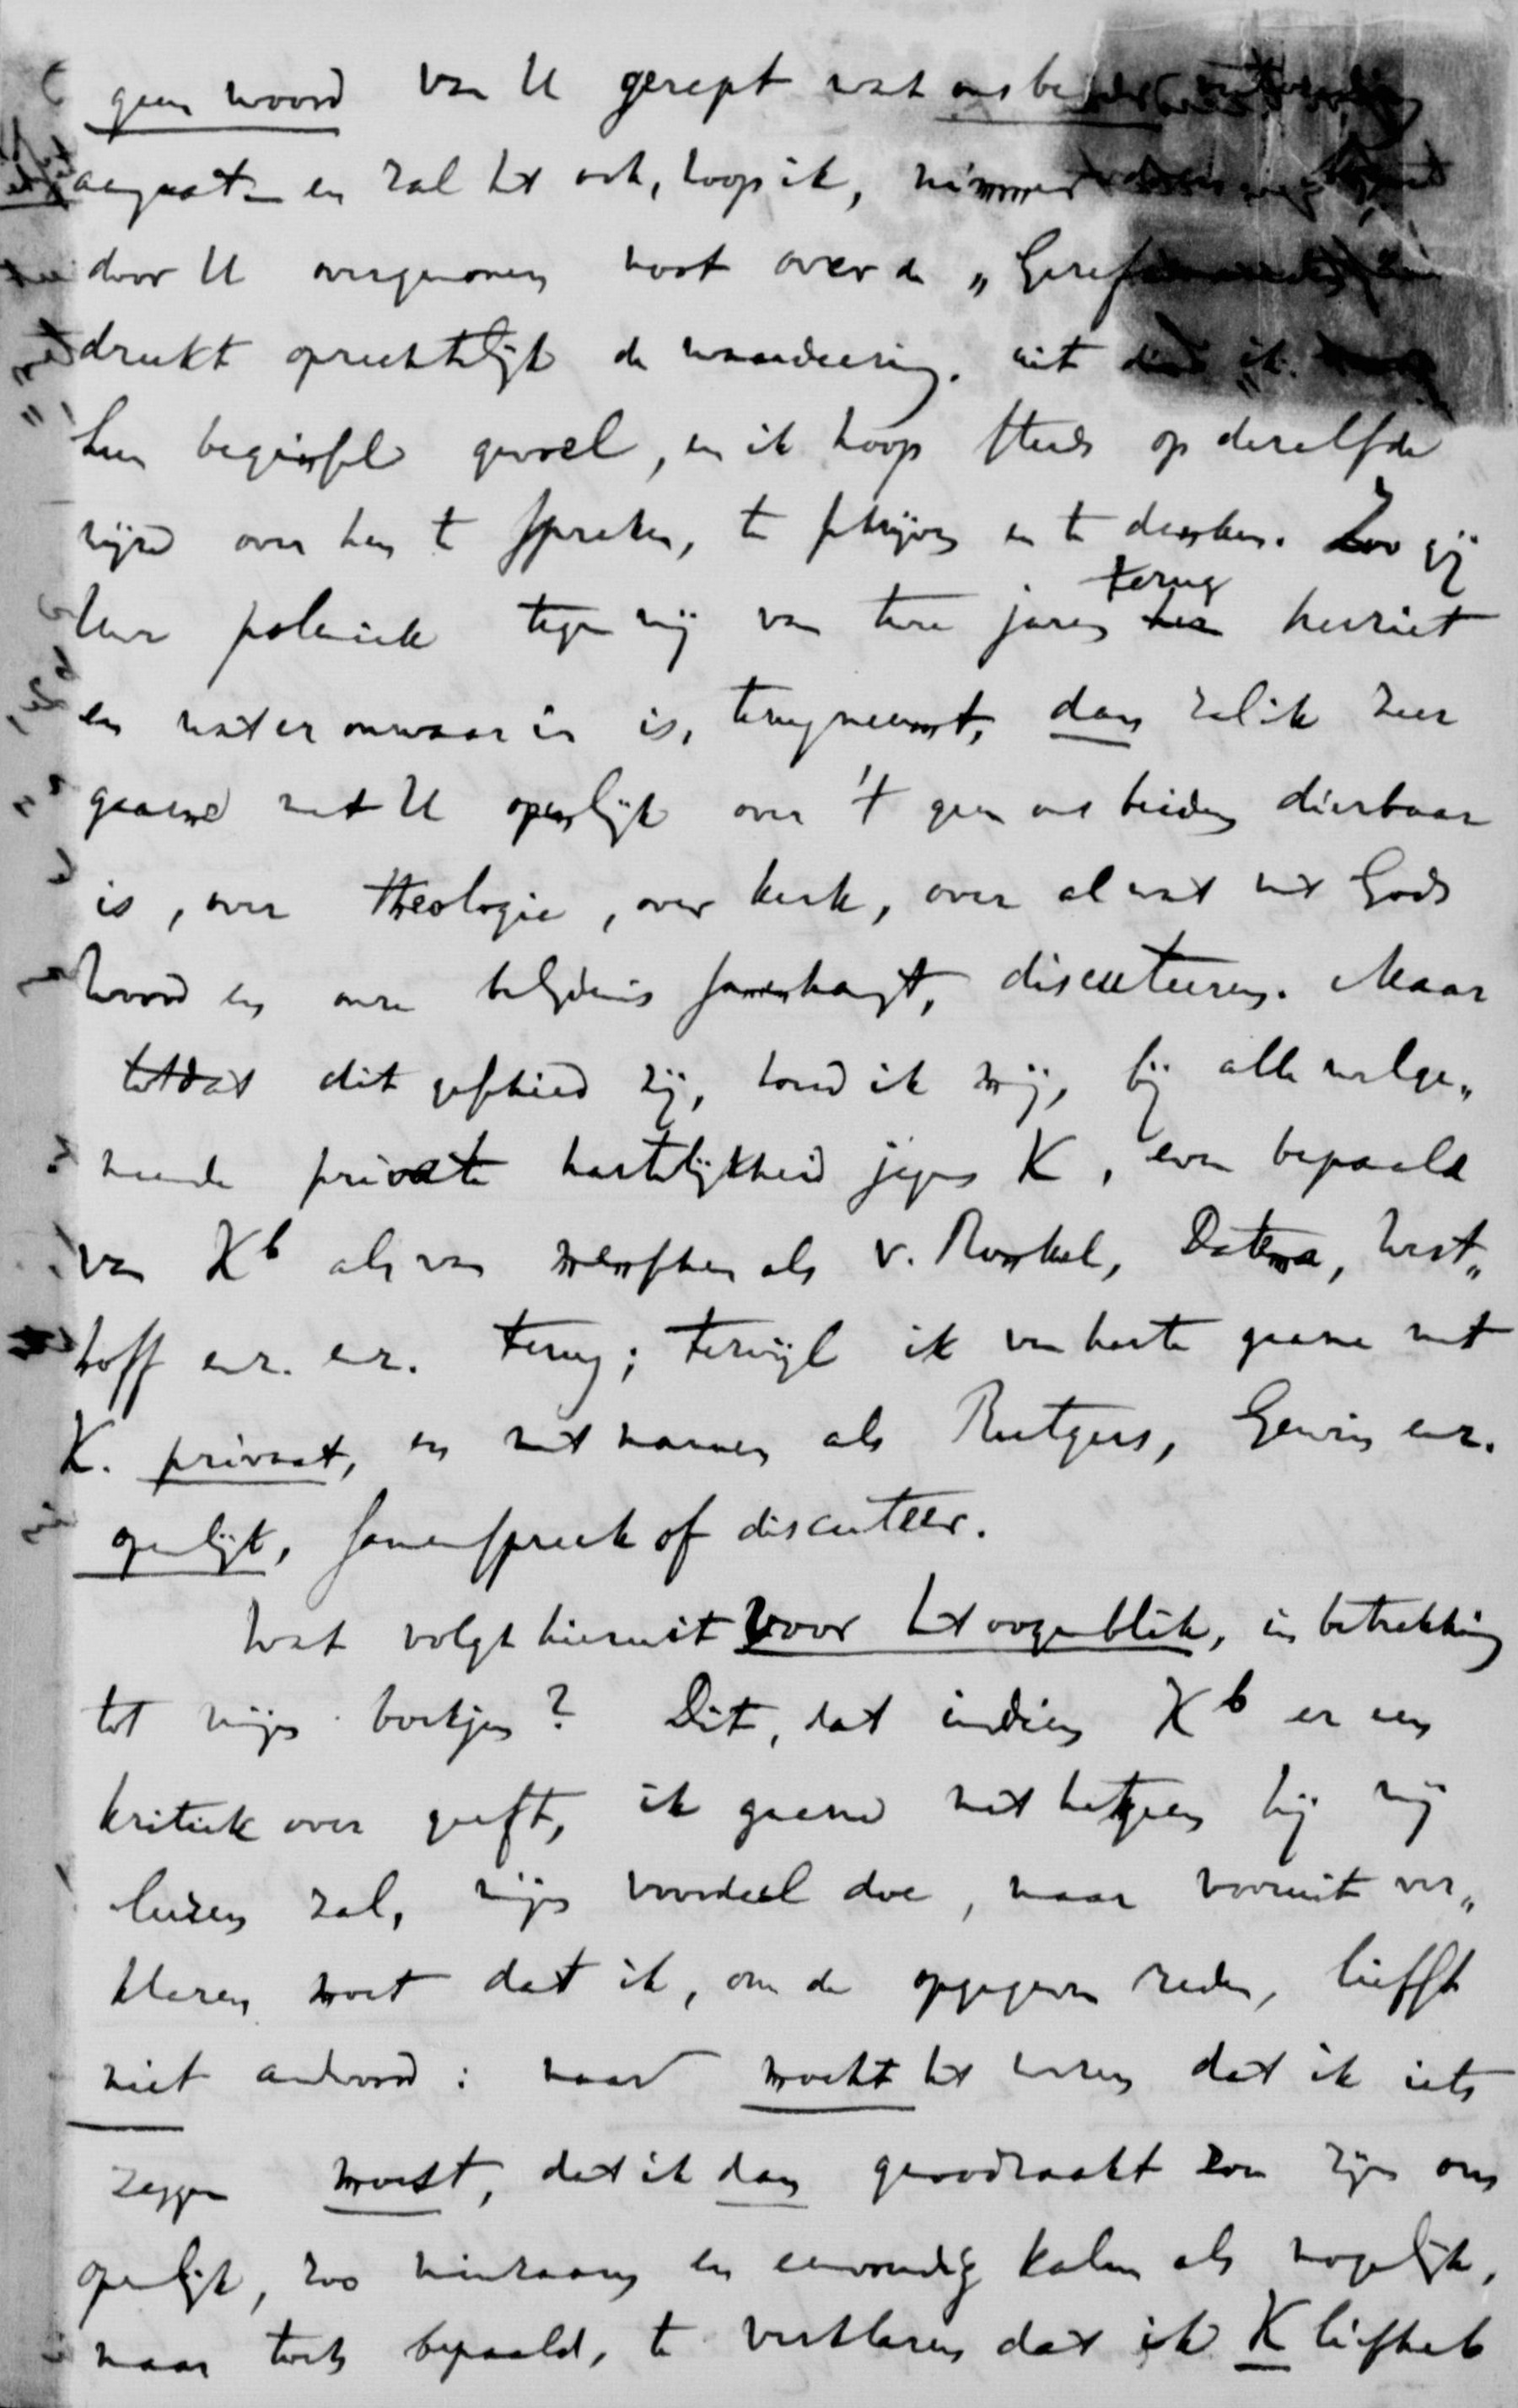 geen woord van U gerept wat ons
en zal het ook, hoop ik, nimmer
door U overgenomen noot over de „Geref
drukt oprechtelijk de waardeering uit die ik
hun beginsel gevoel, en ik hoop steeds op dezelfde
wijze over hen te spreken, te schrijven en te denken. Zoo gij
Uw polemiek tegen mij van twee jaren terug herziet
en wat er onwaar in is, terugneemt, dan zal ik zeer
gaarne met U openlijk over 't geen ons beiden dierbaar
is, over theologie, over kerk, over al wat met Gods
Woord en onze belijdenis samenhangt, discuteeren. Maar
totdat dit geschied zij, houd ik mij, bij alle welge„
meende private hartelijkheid jegens K, even bepaald
van Kb als van menschen als v. Ronkel, Datema, West„
hoff enz. enz. terug; terwijl ik van harte gaarne met
K. privaat, en met mannen als Rutgers, Gewin enz.
openlijk, samenspreek of discuteer.
Wat volgt hieruit voor het oogenblik, in betrekking
tot mijn boekjen? Dit, dat indien Kb er een
kritiek over geeft, ik gaarne met hetgeen hij mij
leeren zal, mijn voordeel doe, maar vooruit ver„
klaren moet dat ik, om de opgegeven reden, liefst
niet antwoord: maar mocht het wezen dat ik iets
zeggen moest, dat ik dan genoodzaakt zou zijn om
openlijk, zoo minzaam en eenvoudig kalm als mogelijk,
maar toch bepaald, te verklaren dat ik K liefheb